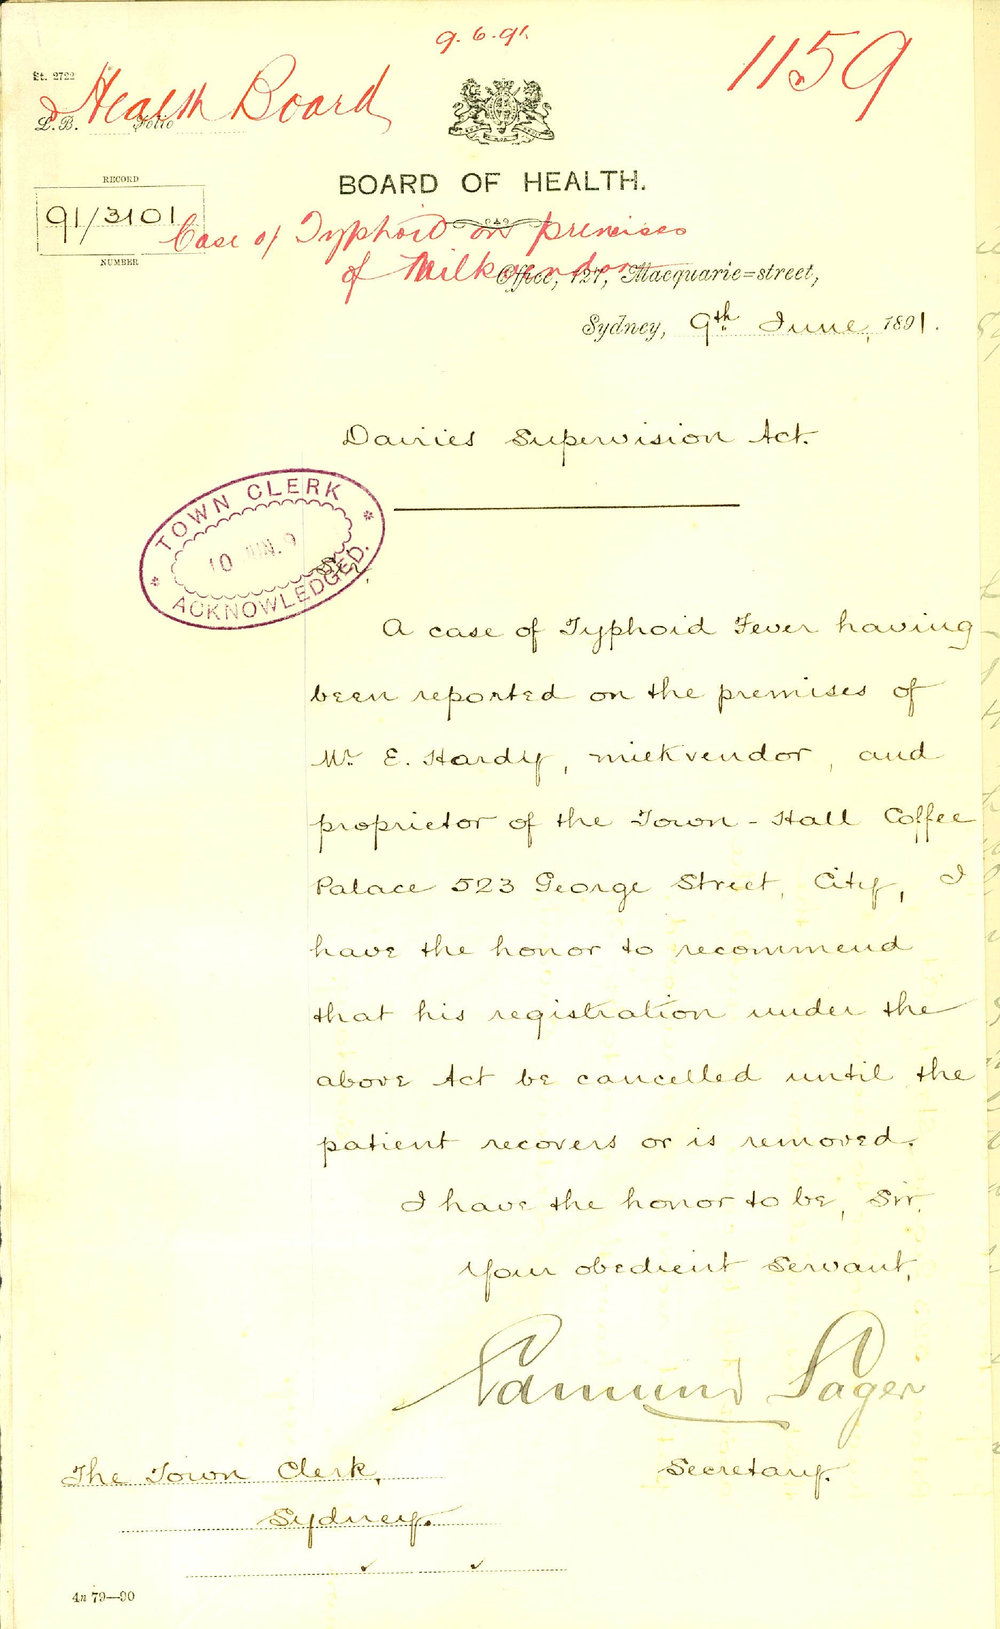 9.6.91.
1159
St. 2722
Health Board
L.B. Folio
BOARD OF HEALTH.
RECORD
91/3101
NUMBER
Case of Typhoid on premises
of Milkvendor
Office, 127, Macquarie=street,
Sydney, 9th June, 1891.
Dairies Supervision Act.
TOWN CLERK
10 JUN. 9
ACKNOWLEDGED.
A case of Typhoid Fever having
been reported on the premises of
Mr. E. Hardy, milkvendor, and
proprietor of the Town-Hall Coffee
Palace 523 George Street, City, I
have the honor to recommend
that his registration under the
above Act be cancelled until the
patient recovers or is removed.
I have the honor to be, Sir,
Your obedient Servant,
Edmund Sager
Secretary.
The Town Clerk,
Sydney.
4n 79—90